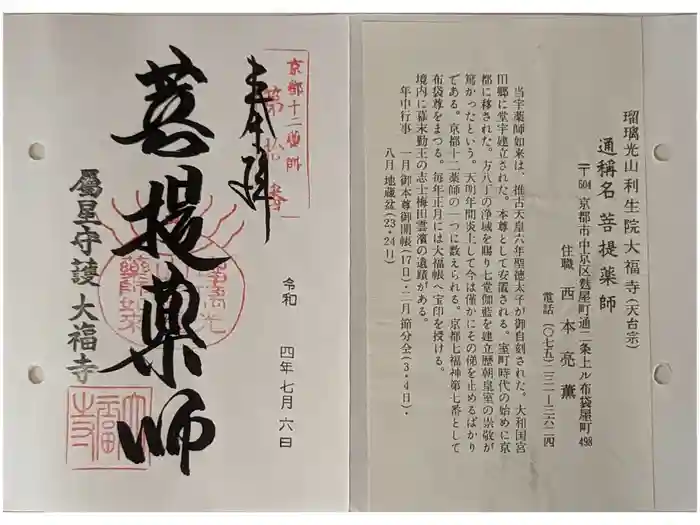 奉拝
京都十二薬師
第 番
菩提薬師
屬星守護 大福寺
令和 四年七月六日
大福寺
瑠璃光山利生院大福寺(天台宗)
通稱名 菩提薬師
〒604 京都市中京区麩屋町通二条上ル布袋屋町498
住職 西本亮薫
電話(〇七五)二三一ー三六二四
当宇薬師如来は、推古天皇六年聖徳太子が御自刻された。大和国宮
田郷に堂宇建立された。本尊として安置される。室町時代の始めに京
都に移された。方八丁の浄域を賜り七堂伽藍を建立歴朝皇室の崇敬が
篤かったという。天明年間炎上して今は僅かにその俤を止めるばかり
である。京都十二薬師の一つに数えられる。京都七福神第七番として
布袋尊をまつる。毎年正月には大福帳へ宝印を授ける。
境内に幕末勤王の志士梅田雲濱の遺蹟がある。
年中行事 一月 御本尊御開帳(17日)・二月 節分会(3・4日)・
八月 地蔵盆(23・24日)